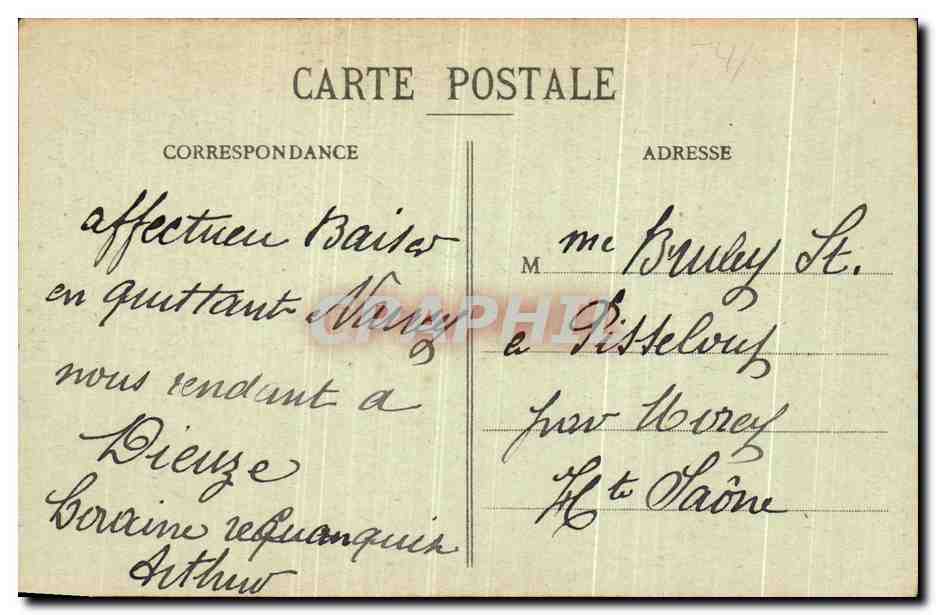 CARTE POSTALE
CORRESPONDANCE
affectueu Baiser
en quittant Nancy
nous rendant a
Dieuze
Loraine
Arthur
ADRESSE
Mme Bruley St.
a Pisseloup
par Morey
Hte Saône
CPAPHIL